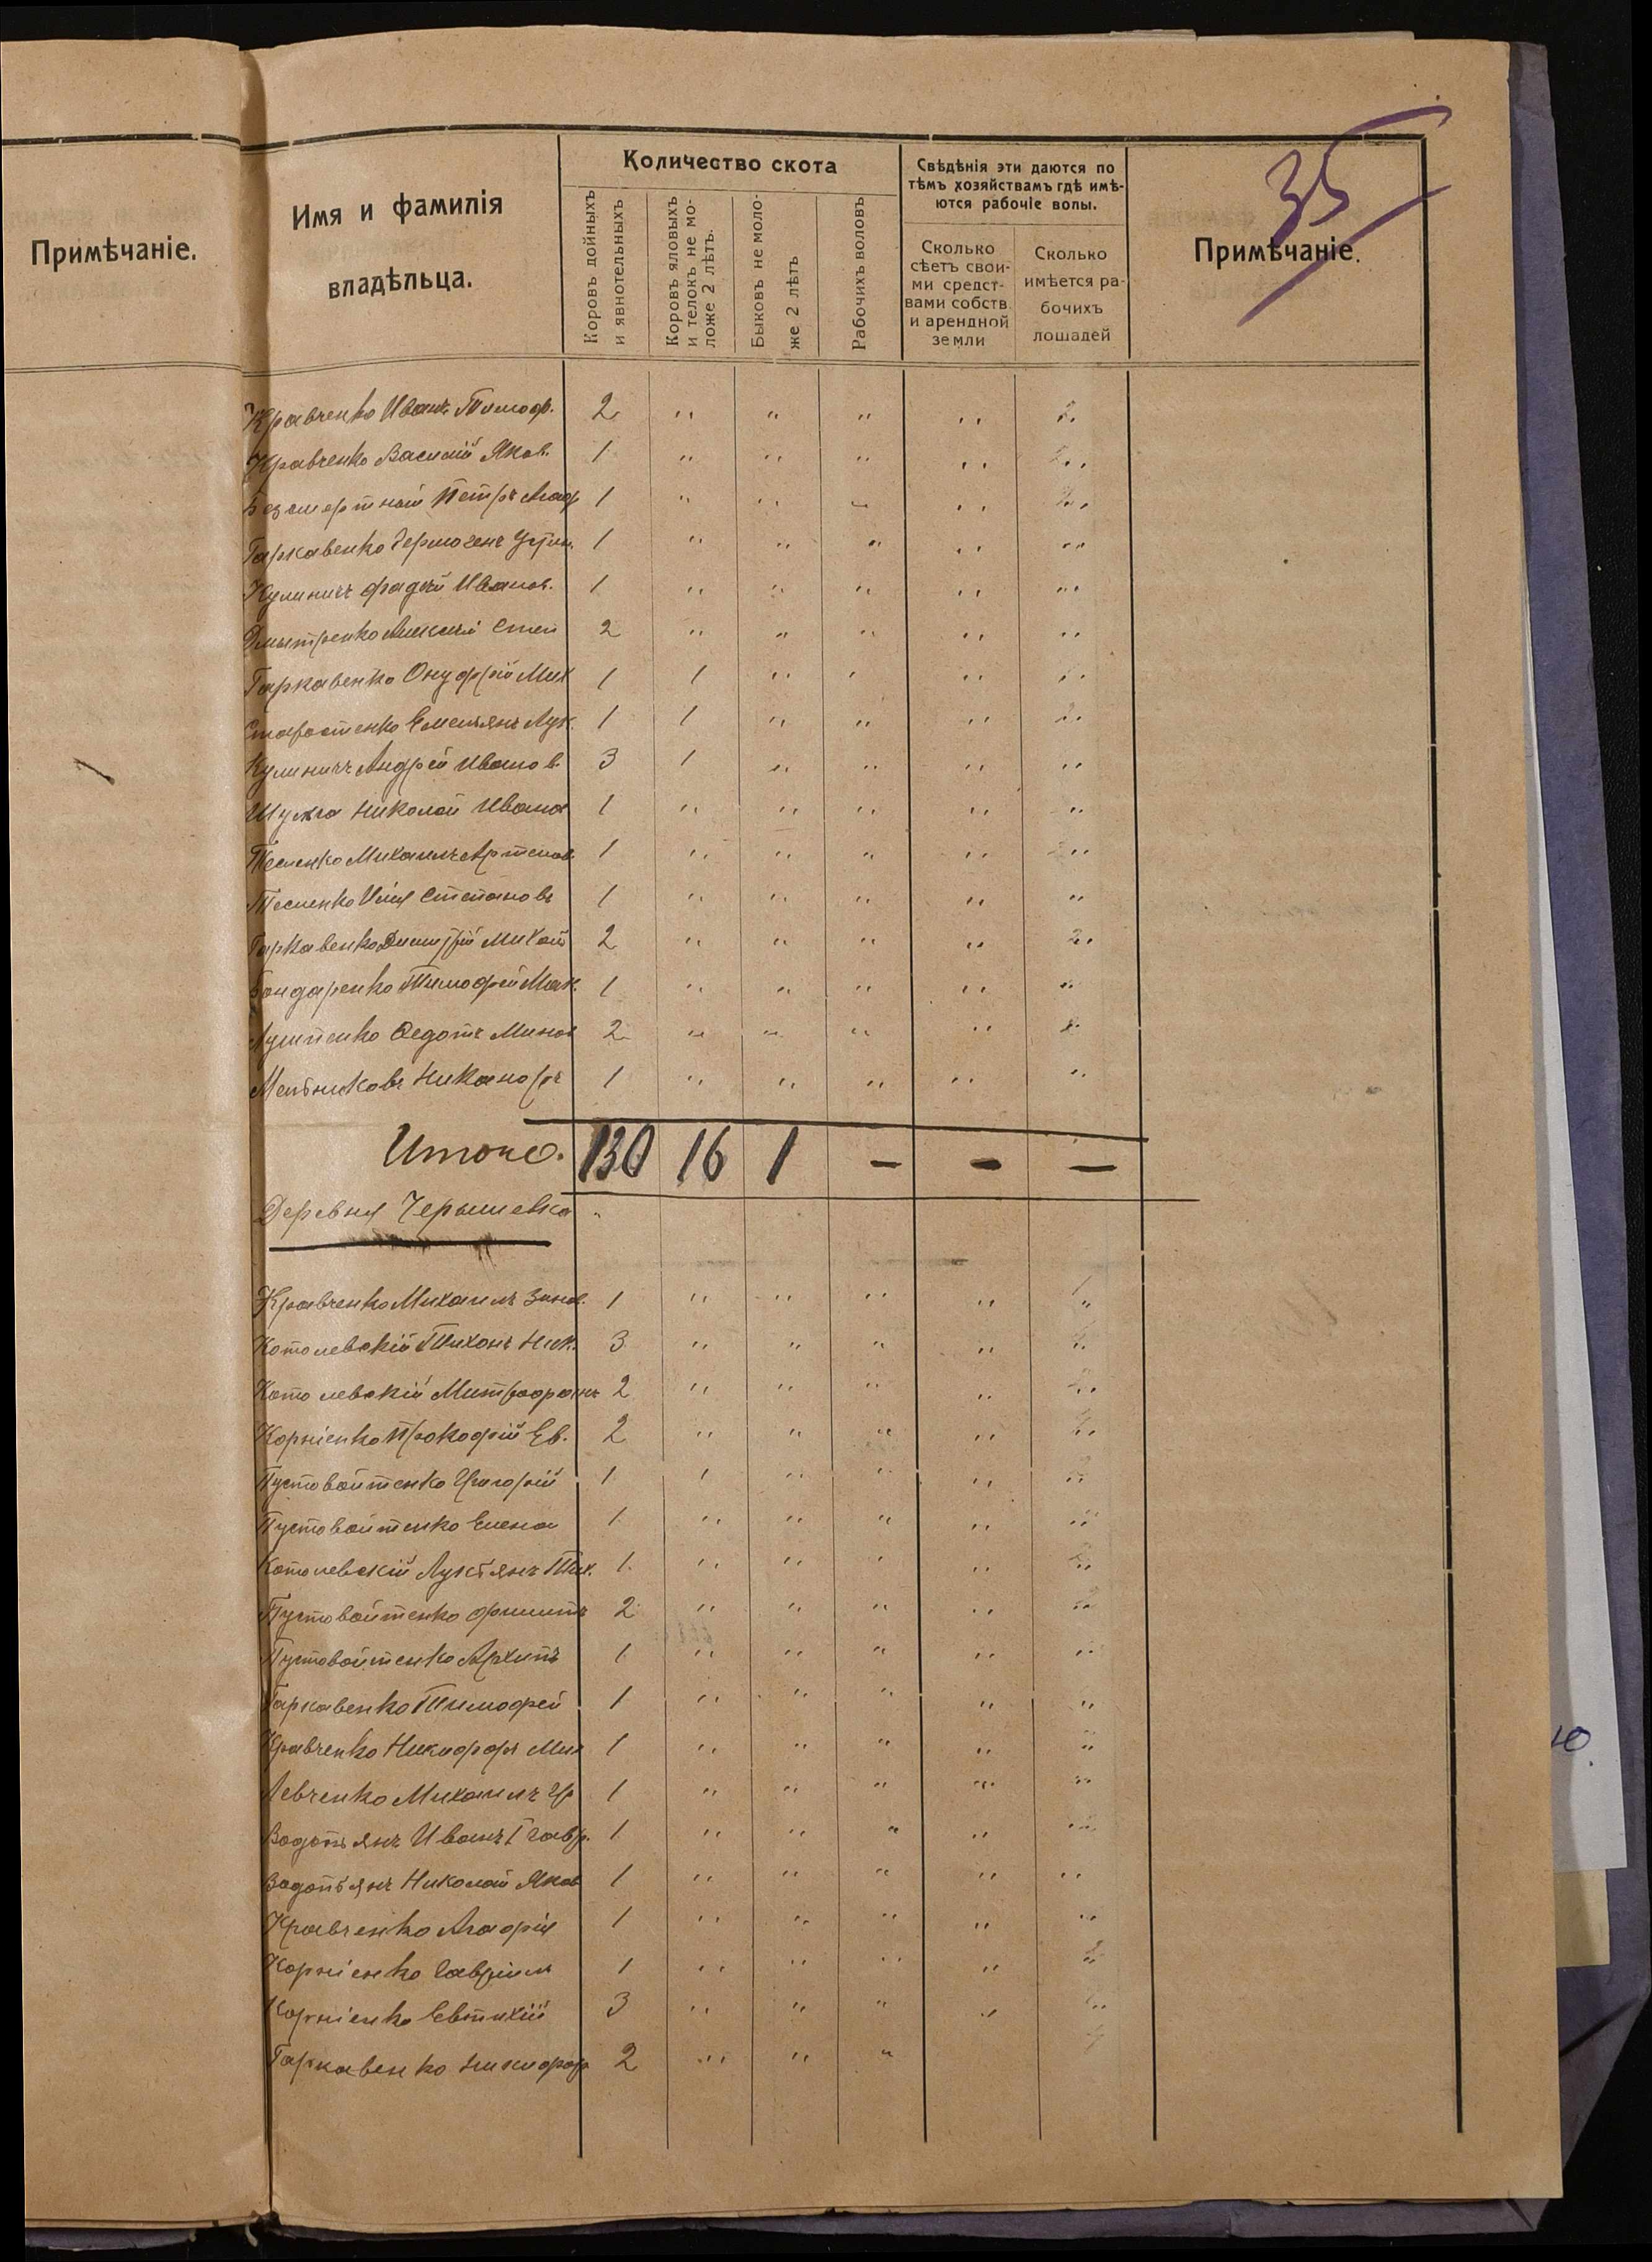 35
Примѣчаніе.
Имя и фамилія
владѣльца.
Количество скота
Коровъ дойныхъ
и явнотельныхъ
Коровъ яловыхъ
и телокъ не мо-
ложе 2 лѣтъ.
Быковъ не моло-
же 2 лѣтъ
Рабочихъ воловъ
Свѣдѣнія эти даются по
тѣмъ хозяйствамъ гдѣ имѣ-
ются рабочіе волы.
Сколько
сѣетъ свои-
ми средст-
вами собств.
и арендной
земли
Сколько
имѣется ра-
бочихъ
лошадей
Примѣчаніе.
Кравченко Иванъ Тимоф. 2 " " " " "
Кравченко Василій Яков. 1 " " " " "
Безсмертный Петръ Агаф 1 " " " " "
Гаркавенко Гермогенъ Устин. 1 " " " " "
Кулиничъ Фадѣй Иванов. 1 " " " " "
Дмытренко Алексѣй Степ 2 " " " " "
Гаркавенко Онуфрій Мих 1 1 " " " "
Старостенко Емельянъ Лук. 1 1 " " " "
Кулиничъ Андрей Иванов. 3 1 " " " "
Шульга Николай Иванов 1 " " " " "
Тесленко Михаилъ Артемов. 1 " " " " "
Тесленко Илія Степановъ 1 " " " " "
Гаркавенко Димитрій Михай 2 " " " " "
Бондаренко Тимофей Мак. 1 " " " " "
Федотъ Минов 2 " " " " "
Мельниковъ Никаноръ 1 " " " " "
Итого. 130 16 1 — — —
Деревня Чернишевка "
Кравченко Михаилъ Зинов. 1 " " " " "
Котолевскій Тихонъ Ник. 3 " " " " "
Котолевскій Митрофанъ 2 " " " " "
Корніенко Прокофій Ев. 2 " " " " "
Пустовойтенко Григорій 1 1 " " " "
Пустовойтенко Елена 1 " " " " "
Котолевскій Лукьянъ Тих. 1 " " " " "
Пустовойтенко Филиппъ 2 " " " " "
Пустовойтенко Архипъ 1 " " " " "
Гаркавенко Тимофей 1 " " " " "
Кравченко Никифоръ Мих 1 " " " " "
Левченко Михаилъ Гр 1 " " " " "
Водопьянъ Иванъ Гавр. 1 " " " " "
Водопьянъ Николай Яков 1 " " " " "
Кравченко Агафія 1 " " " " "
Корніенко Гавріилъ 1 " " " " "
Корніенко Евтихій 3 " " " " "
Гаркавенко Никифор 2 " " "
ю.